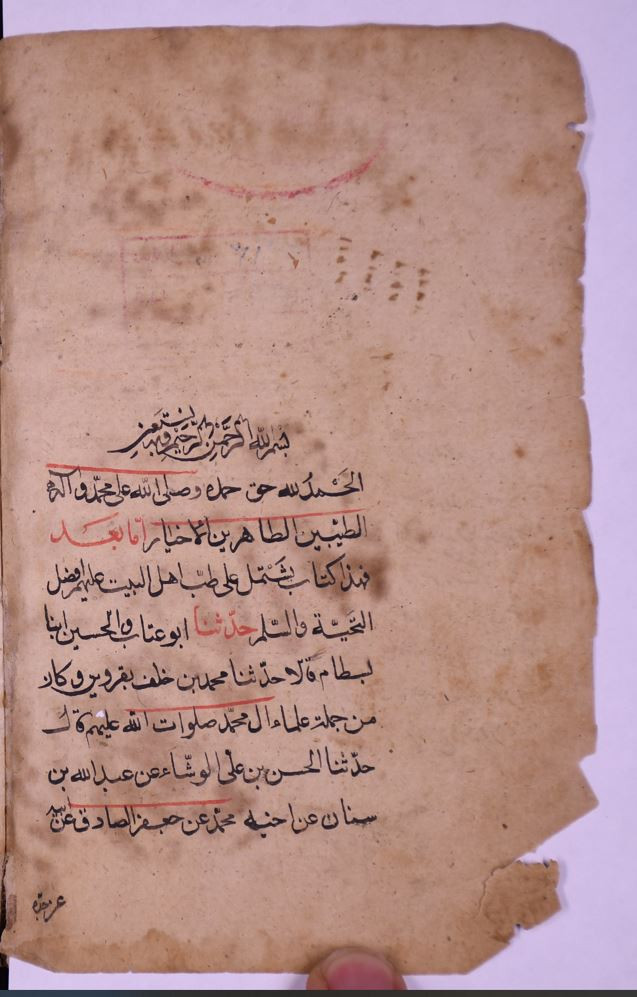 بسم الله الرحمن الرحيم وبه نستعين
الحمد لله حق حمده وصلى الله على محمد وآله
الطيبين الطاهرين الاخيار اما بعد
فهذا كتاب يشتمل على طب اهل البيت عليهم افضل
التحية والسلم حدثنا ابو عتاب والحسين ابنا
بسطام قالا حدثنا محمد بن خلف بقزوين وكان
من جملة علماء ال محمد صلوات الله عليهم قال
حدثنا الحسن بن علي الوشاء عن عبد الله بن
سنان عن اخيه محمد عن جعفر الصادق عن ابيه
عن جده